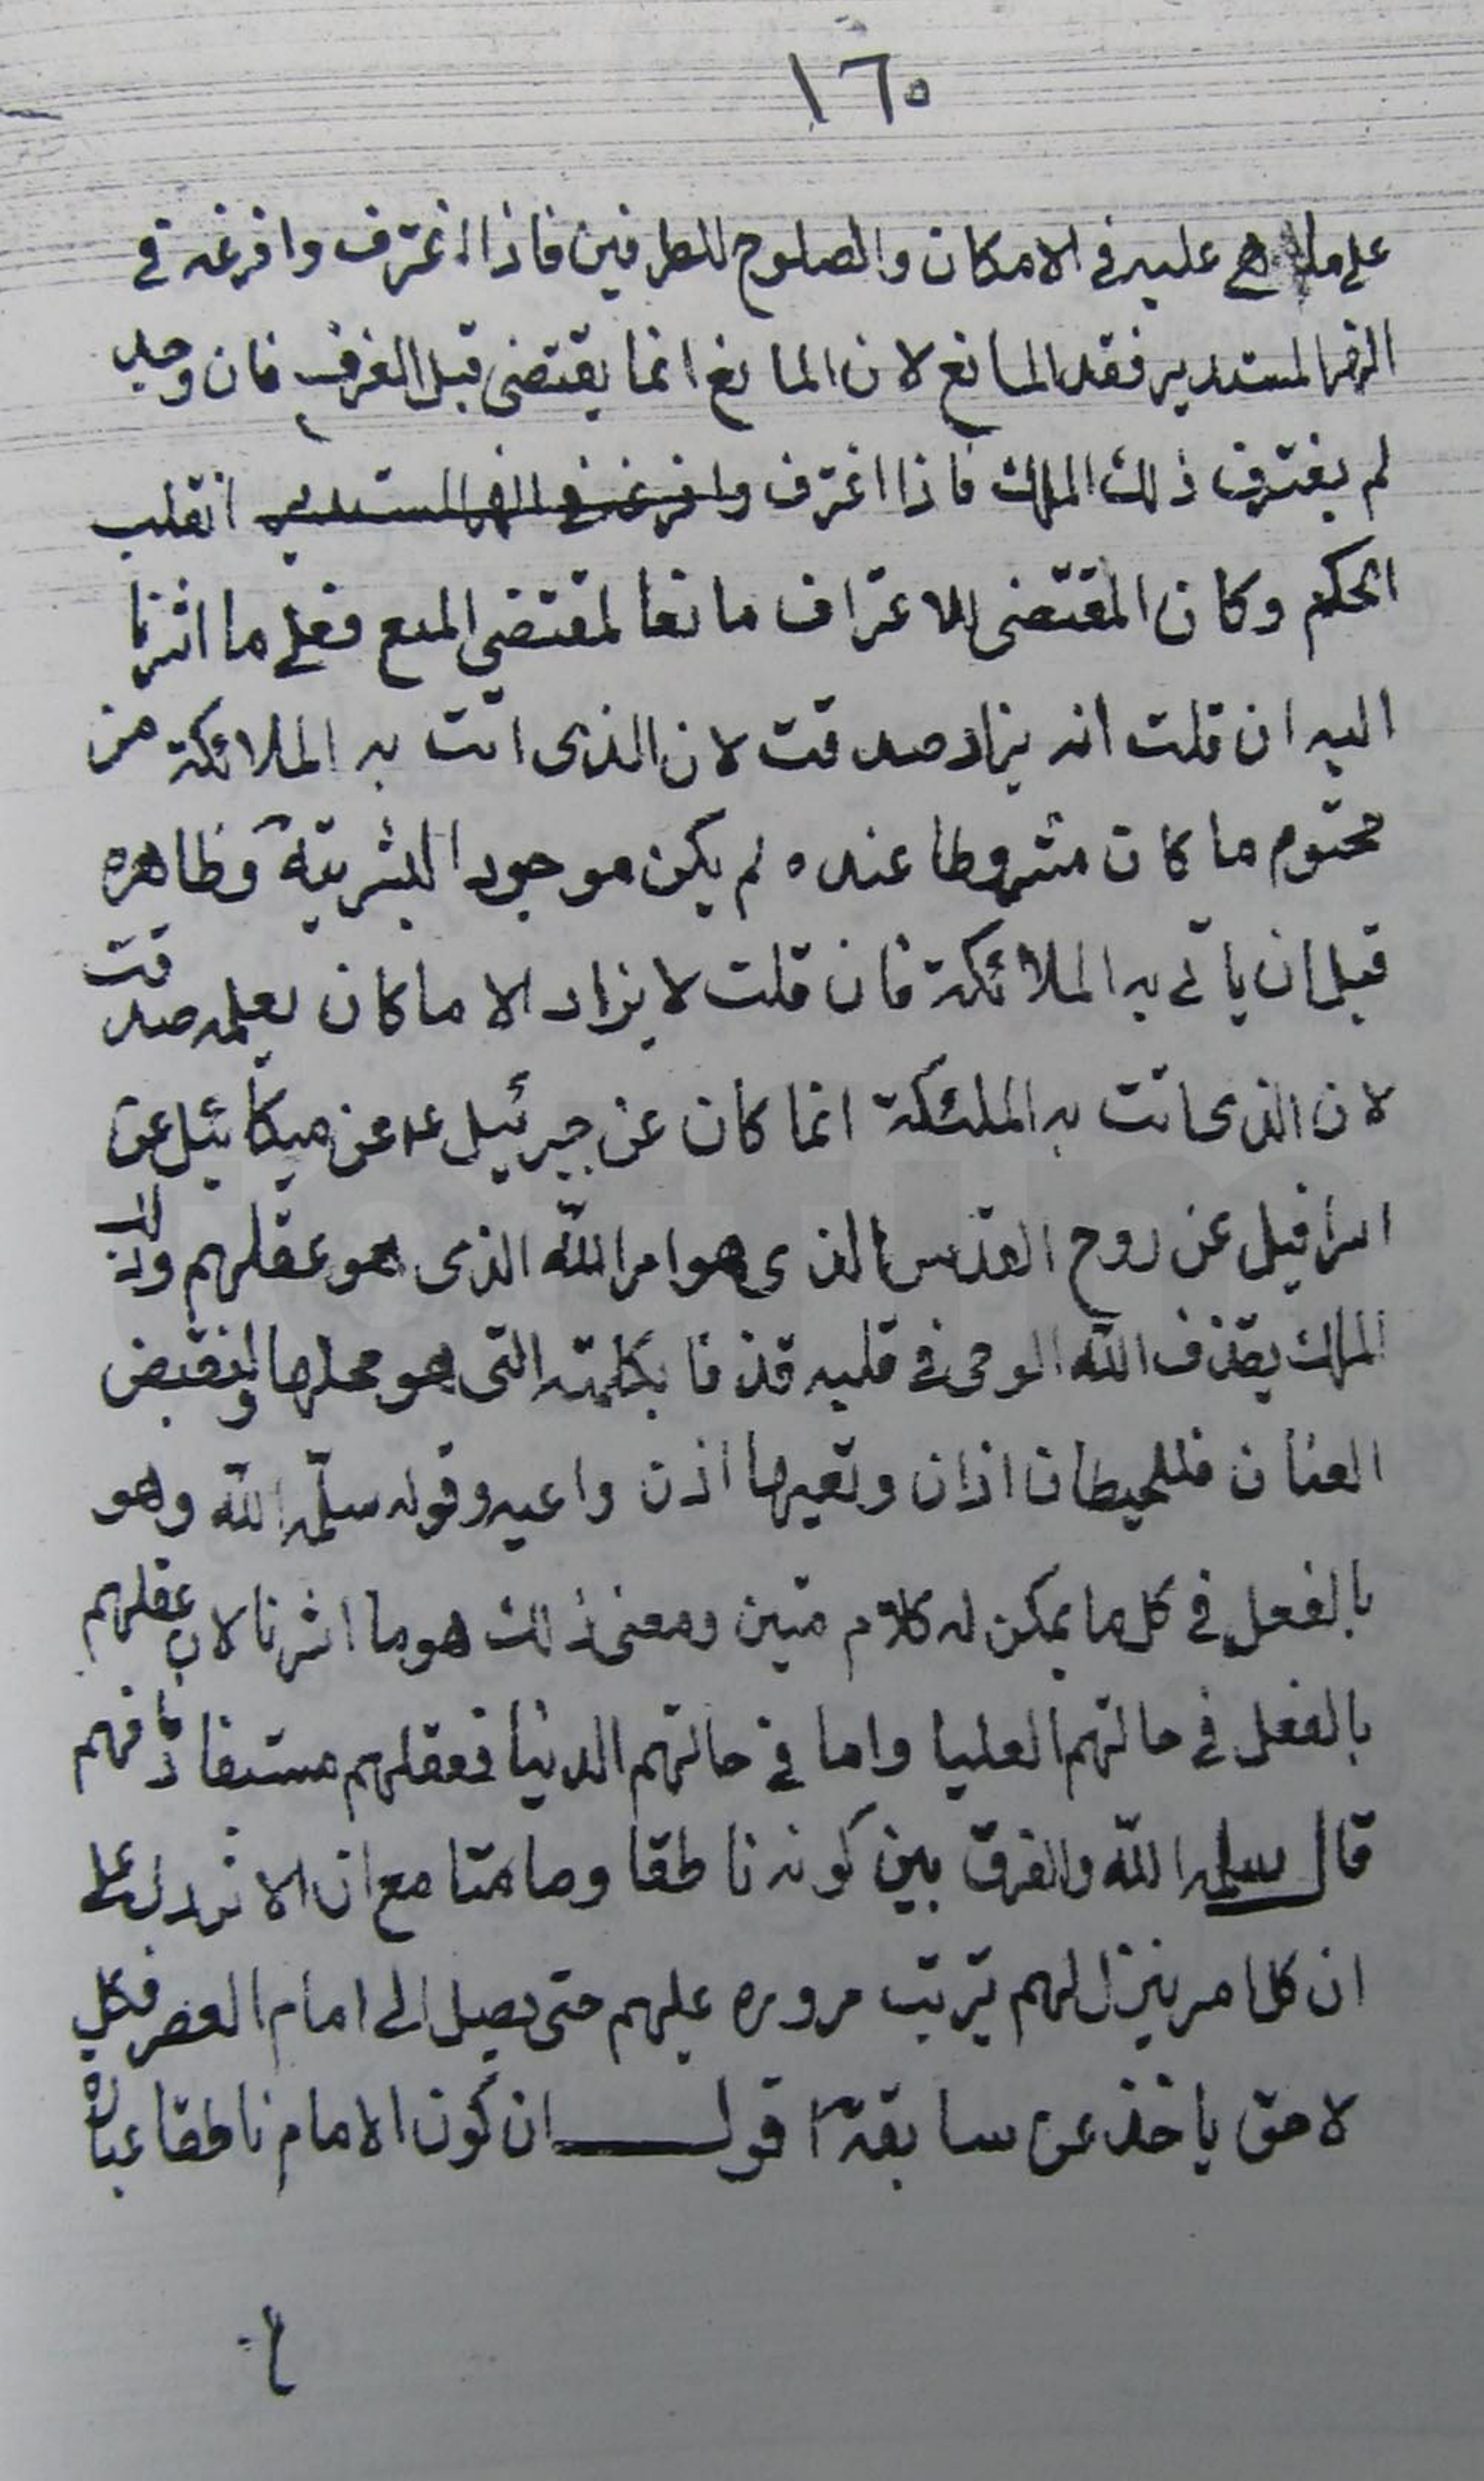 ١٦٥
على ما هي عليه في الامكان والصلوح للطرفين فاذا اغترف وافرغه في
النهر المستدير فقد المانع لان المانع انما يقتضي قبل الغرف فان وجد
لم يغترف ذلك الملك فاذا اغترف وافرغه في النهر المستدير انقلب
الحكم وكان المقتضى للاغتراف مانعا لمقتضي المنع فعلى ما اشرنا
اليه ان قلت انه يزاد صدقت لان الذى اتت به الملائكة من
محتوم ما كان مشروطا عنده لم يكن موجودا لبشريته وظاهره
قبل ان ياتي به الملائكة فان قلت لا يزاد الا ما كان يعلمه صدقت
لان الذى اتت به الملئكة انما كان عن جبرئيل عن ميكائيل عن
اسرافيل عن روح القدس الذى هو امر الله الذى هو عقلهم وذلك
الملك يقذف الله الوحي في قلبه قذفا بكلمته التى هو محلها ولنقبض
العنان فللحيطان اذان وتعيها اذن واعيه وقوله سلمه الله وهو
بالفعل في كل ما يمكن له كلام متين ومعنى ذلك هو ما اشرنا لان عقلهم
بالفعل في حالتهم العليا واما في حالتهم الدنيا فعقلهم مستفاد فافهم
قال سلمه الله والفرق بين كونه ناطقا وصامتا مع ان الاثر دل على
ان كل امر ينزل لهم ترتب مروره عليهم حتى يصل الى امام العصر فكل
لاحق ياخذ عن سابقه اقول ان كون الامام ناطقا عبارة